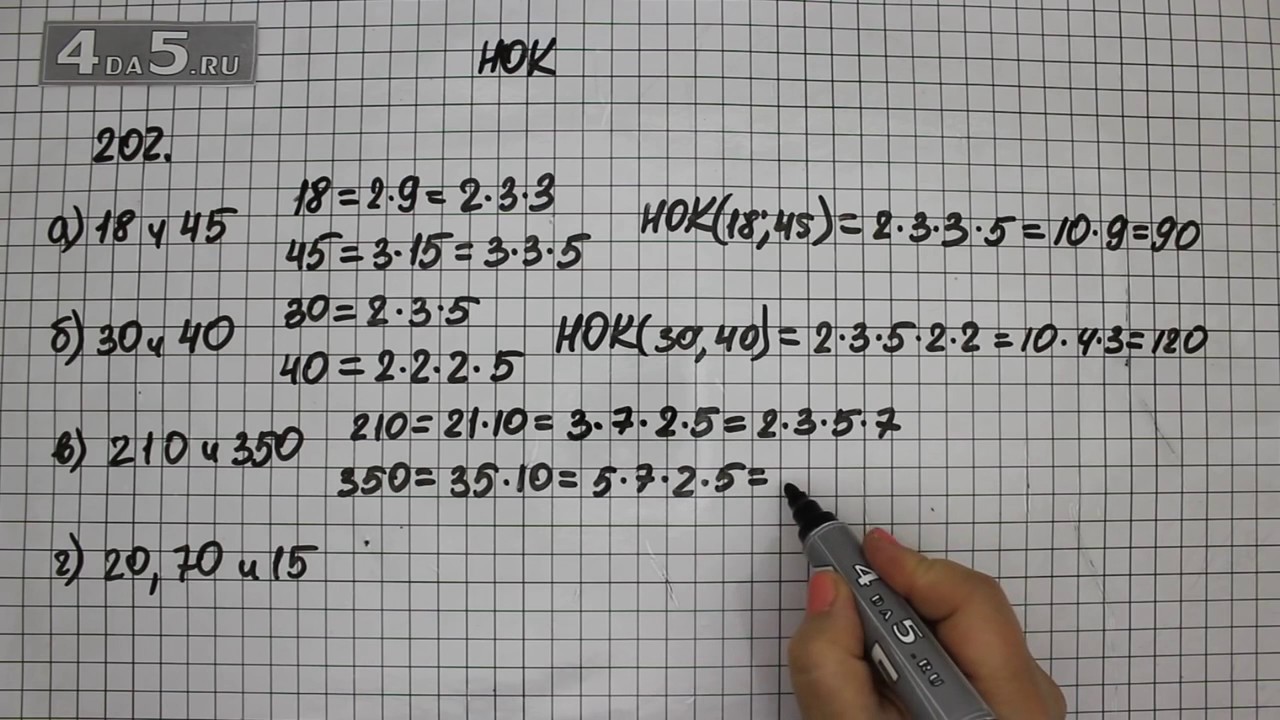 4DA5.RU
НОК
202.
а) 18 и 45
18 = 2·9 = 2·3·3
45 = 3·15 = 3·3·5
НОК(18;45) = 2·3·3·5 = 10·9 = 90
б) 30 и 40
30 = 2·3·5
40 = 2·2·2·5
НОК(30,40) = 2·3·5·2·2 = 10·4·3 = 120
в) 210 и 350
210 = 21·10 = 3·7·2·5 = 2·3·5·7
350 = 35·10 = 5·7·2·5 =
г) 20, 70 и 15
4DA5.RU